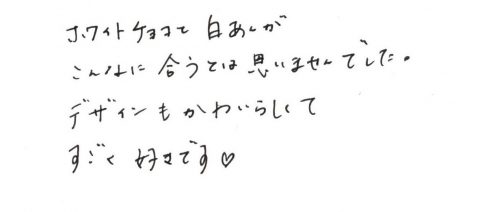 ホワイトチョコと白あんが
こんなに合うとは思いませんでした。
デザインもかわいらしくて
すごく好きです♡